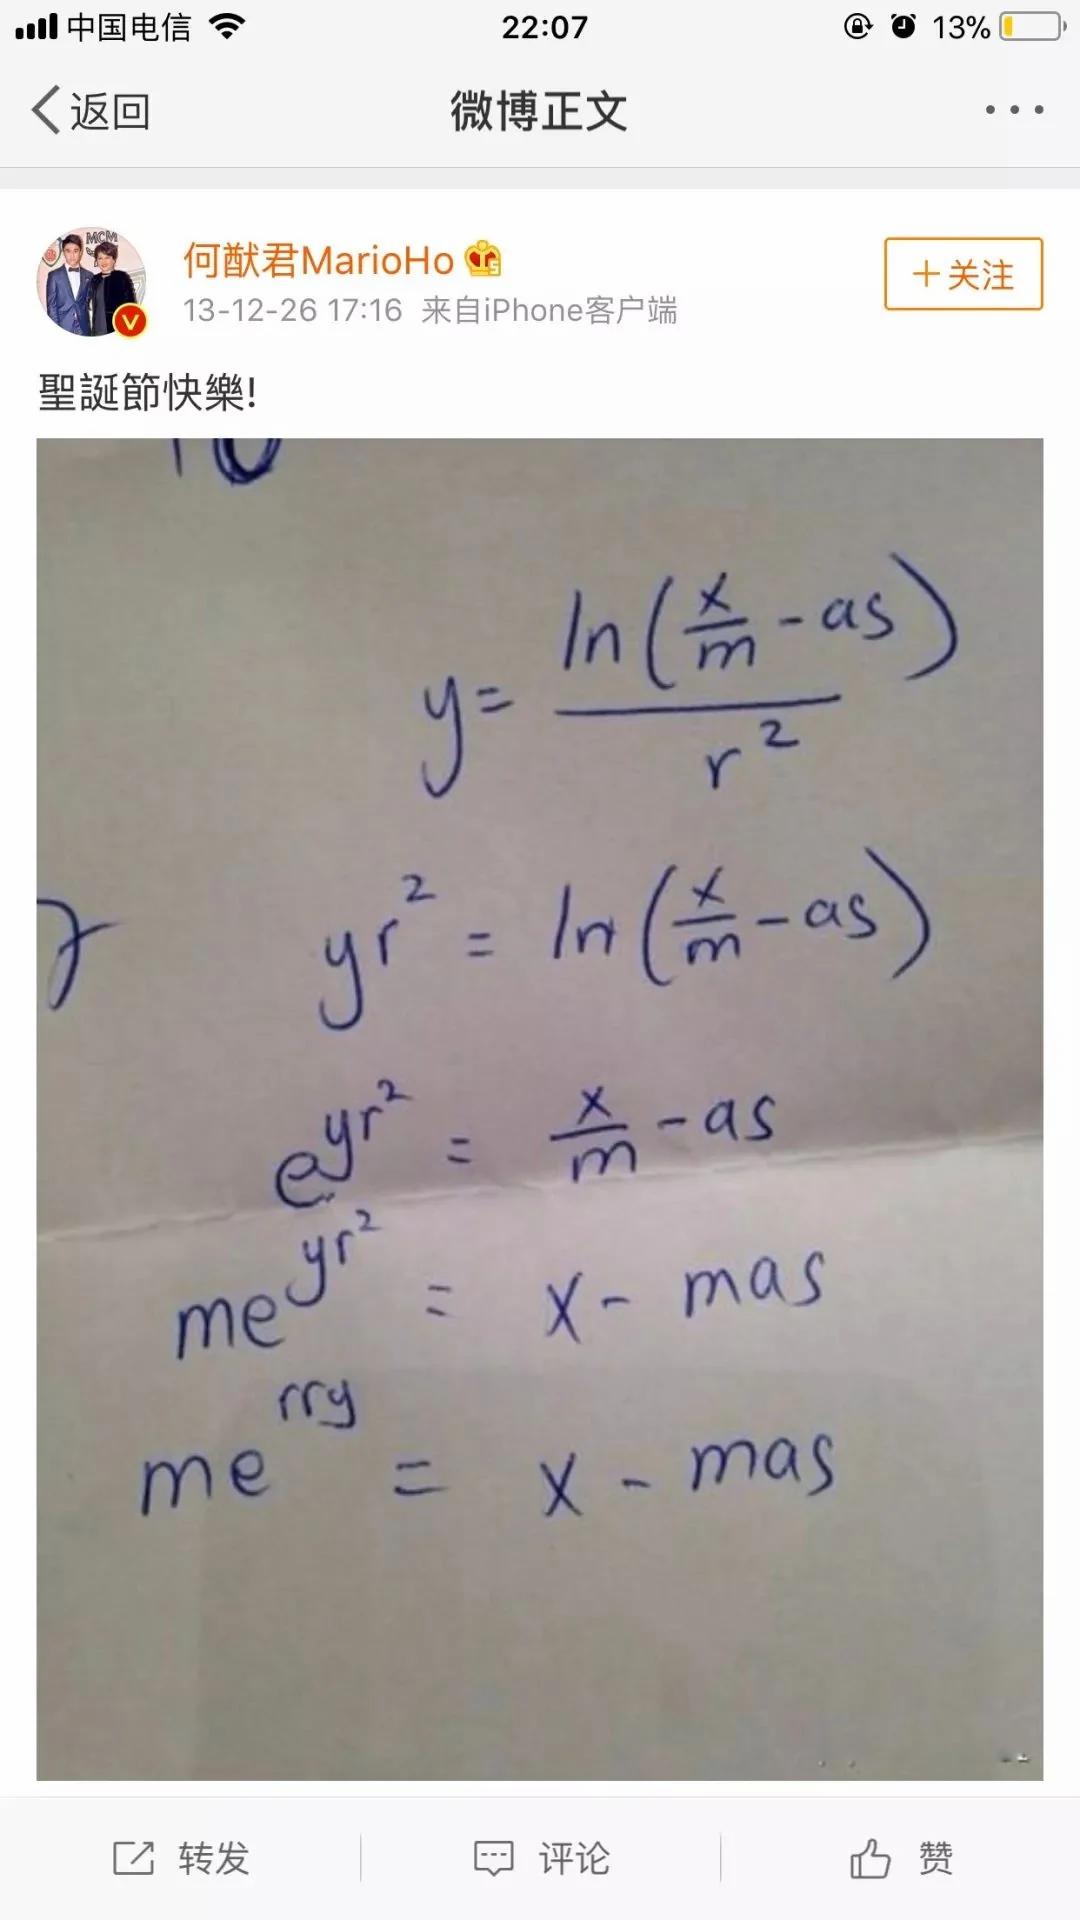 中国电信 22:07 13%
返回 微博正文 ···
何猷君MarioHo
+关注
13-12-26 17:16 来自iPhone客户端
聖誕節快樂!
y = ln(x/m - as) / r²
yr² = ln(x/m - as)
e^yr² = x/m - as
me^yr² = x - mas
me^rry = x - mas
转发 评论 赞